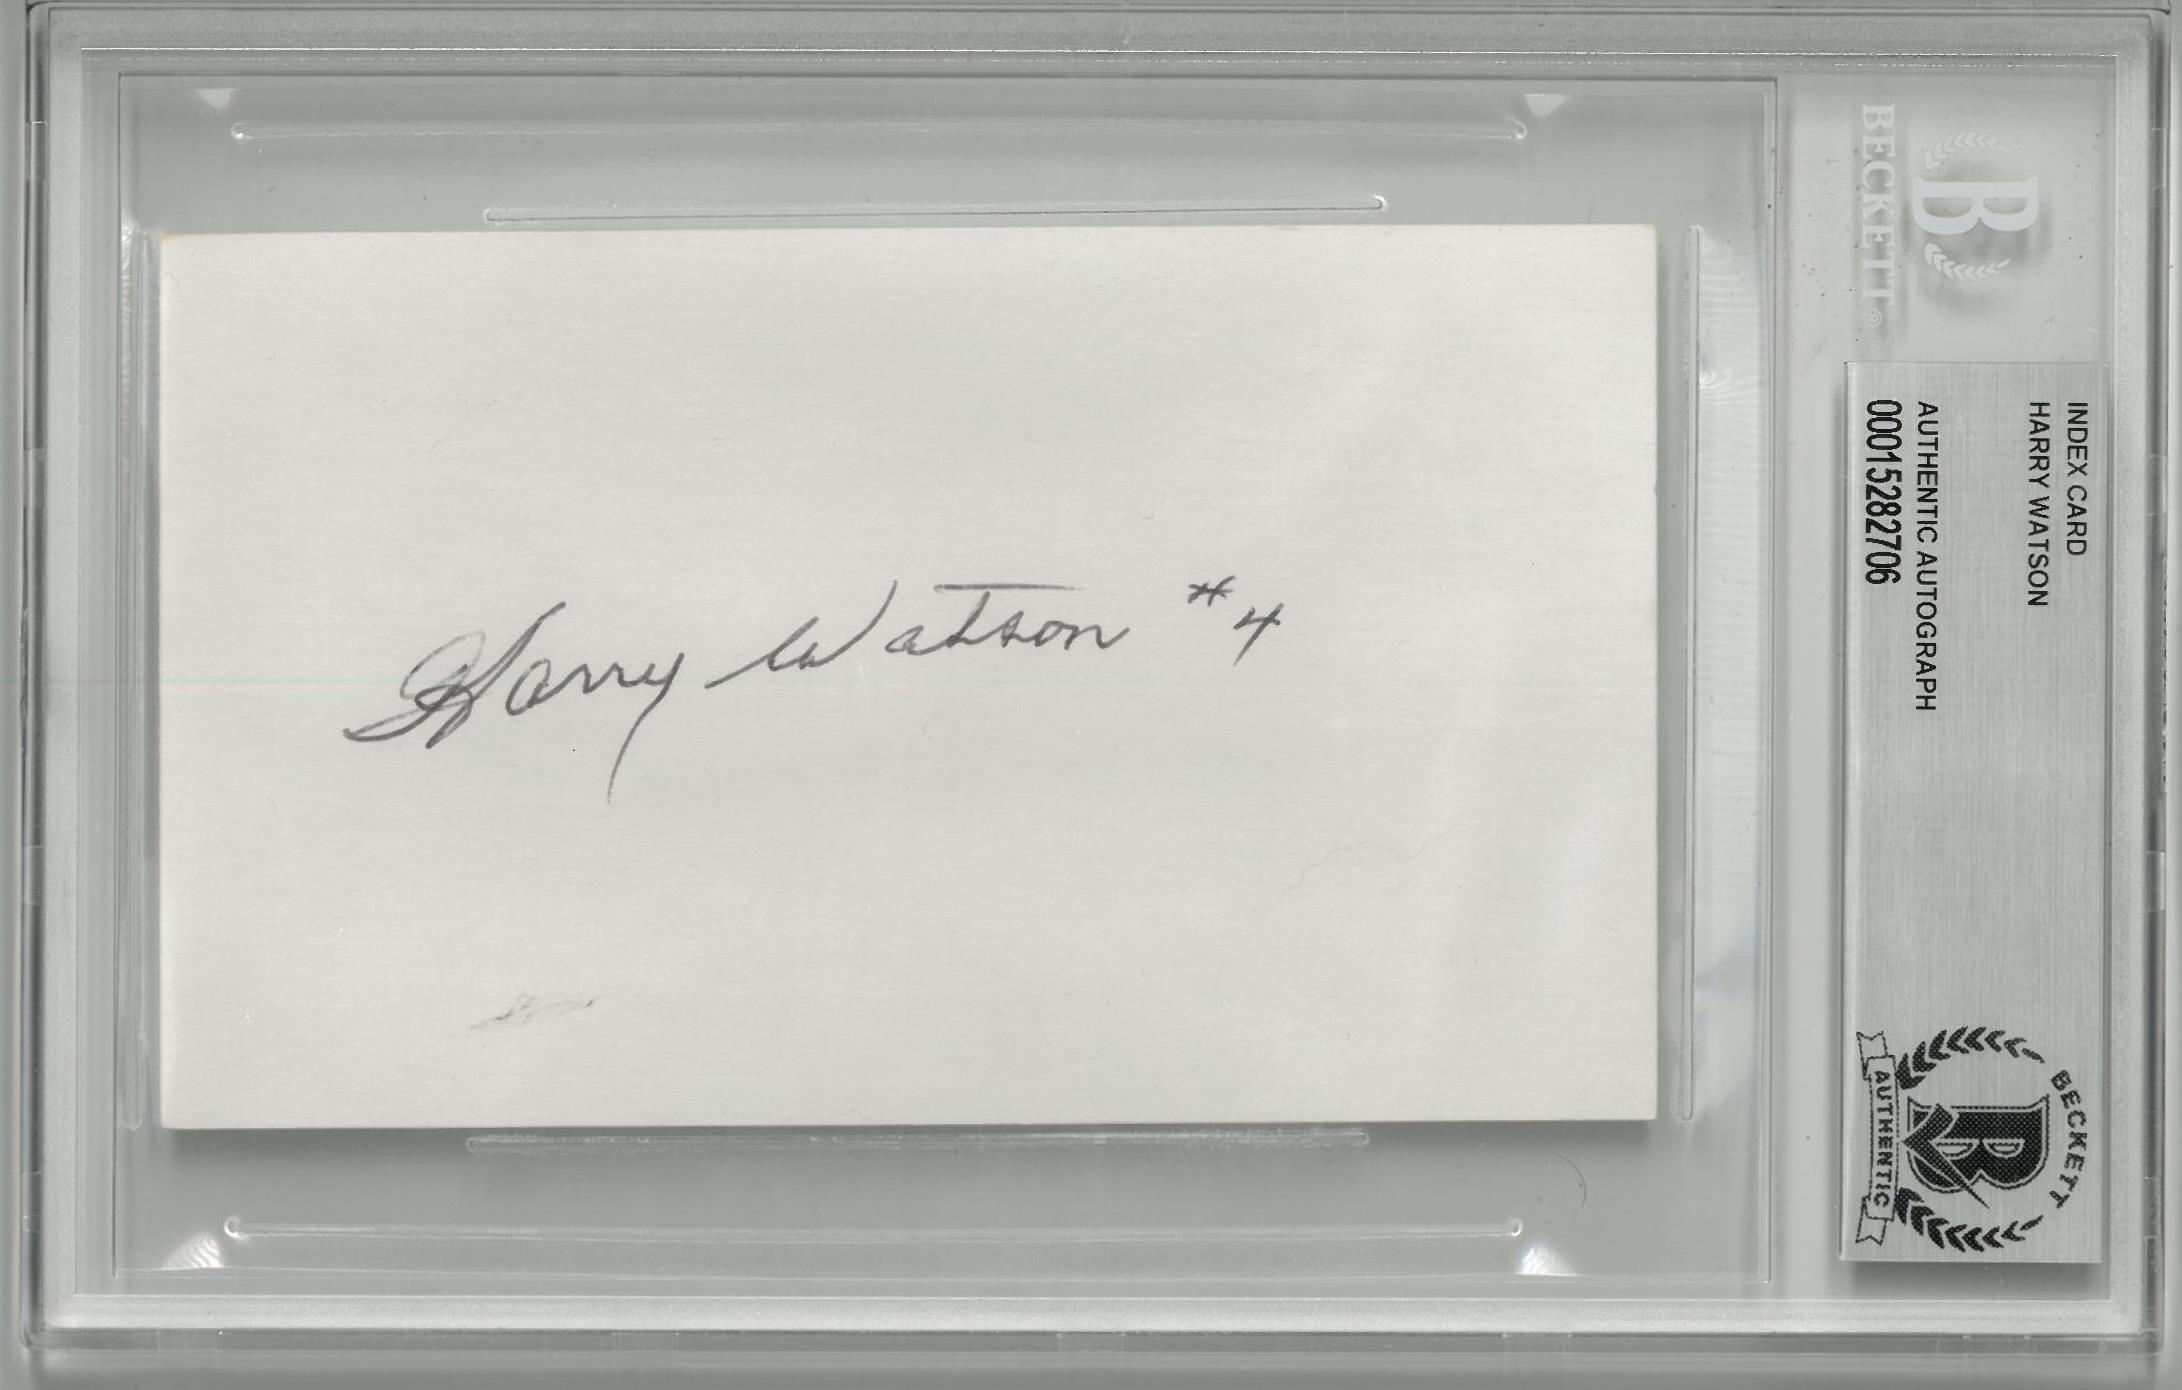 Harry Watson #4
BECKETT®
B
INDEX CARD
HARRY WATSON
AUTHENTIC AUTOGRAPH
00015282706
BECKETT
B
AUTHENTIC